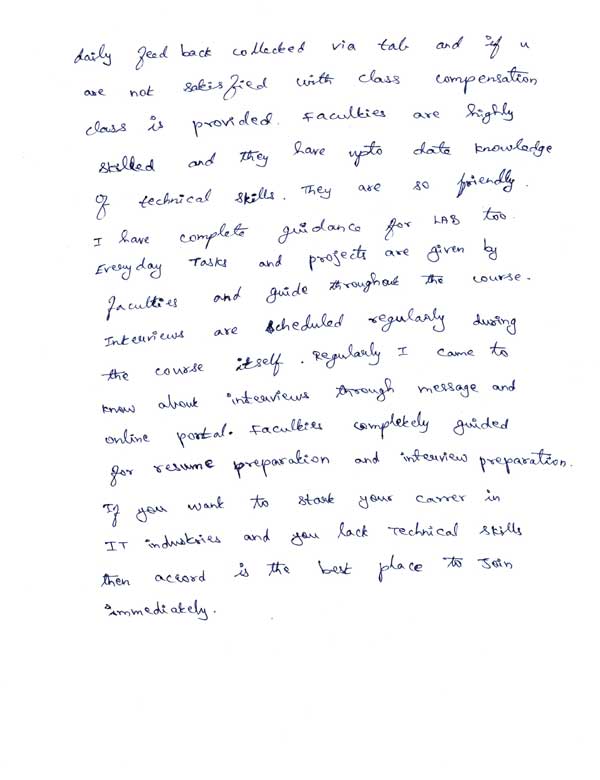 daily feed back collected via tab and if u
are not satisfied with class compensation
class is provided. Faculties are highly
skilled and they have upto date knowledge
of technical skills. They are so friendly.
I have complete guidance for LAB too.
Everyday Tasks and projects are given by
faculties and guide throughout the course.
Interviews are scheduled regularly during
the course itself. Regularly I came to
know about interviews through message and
online portal. Faculties completely guided
for resume preparation and interview preparation.
If you want to start your carrer in
IT industries and you lack Technical skills
then accord is the best place to Join
immediately.